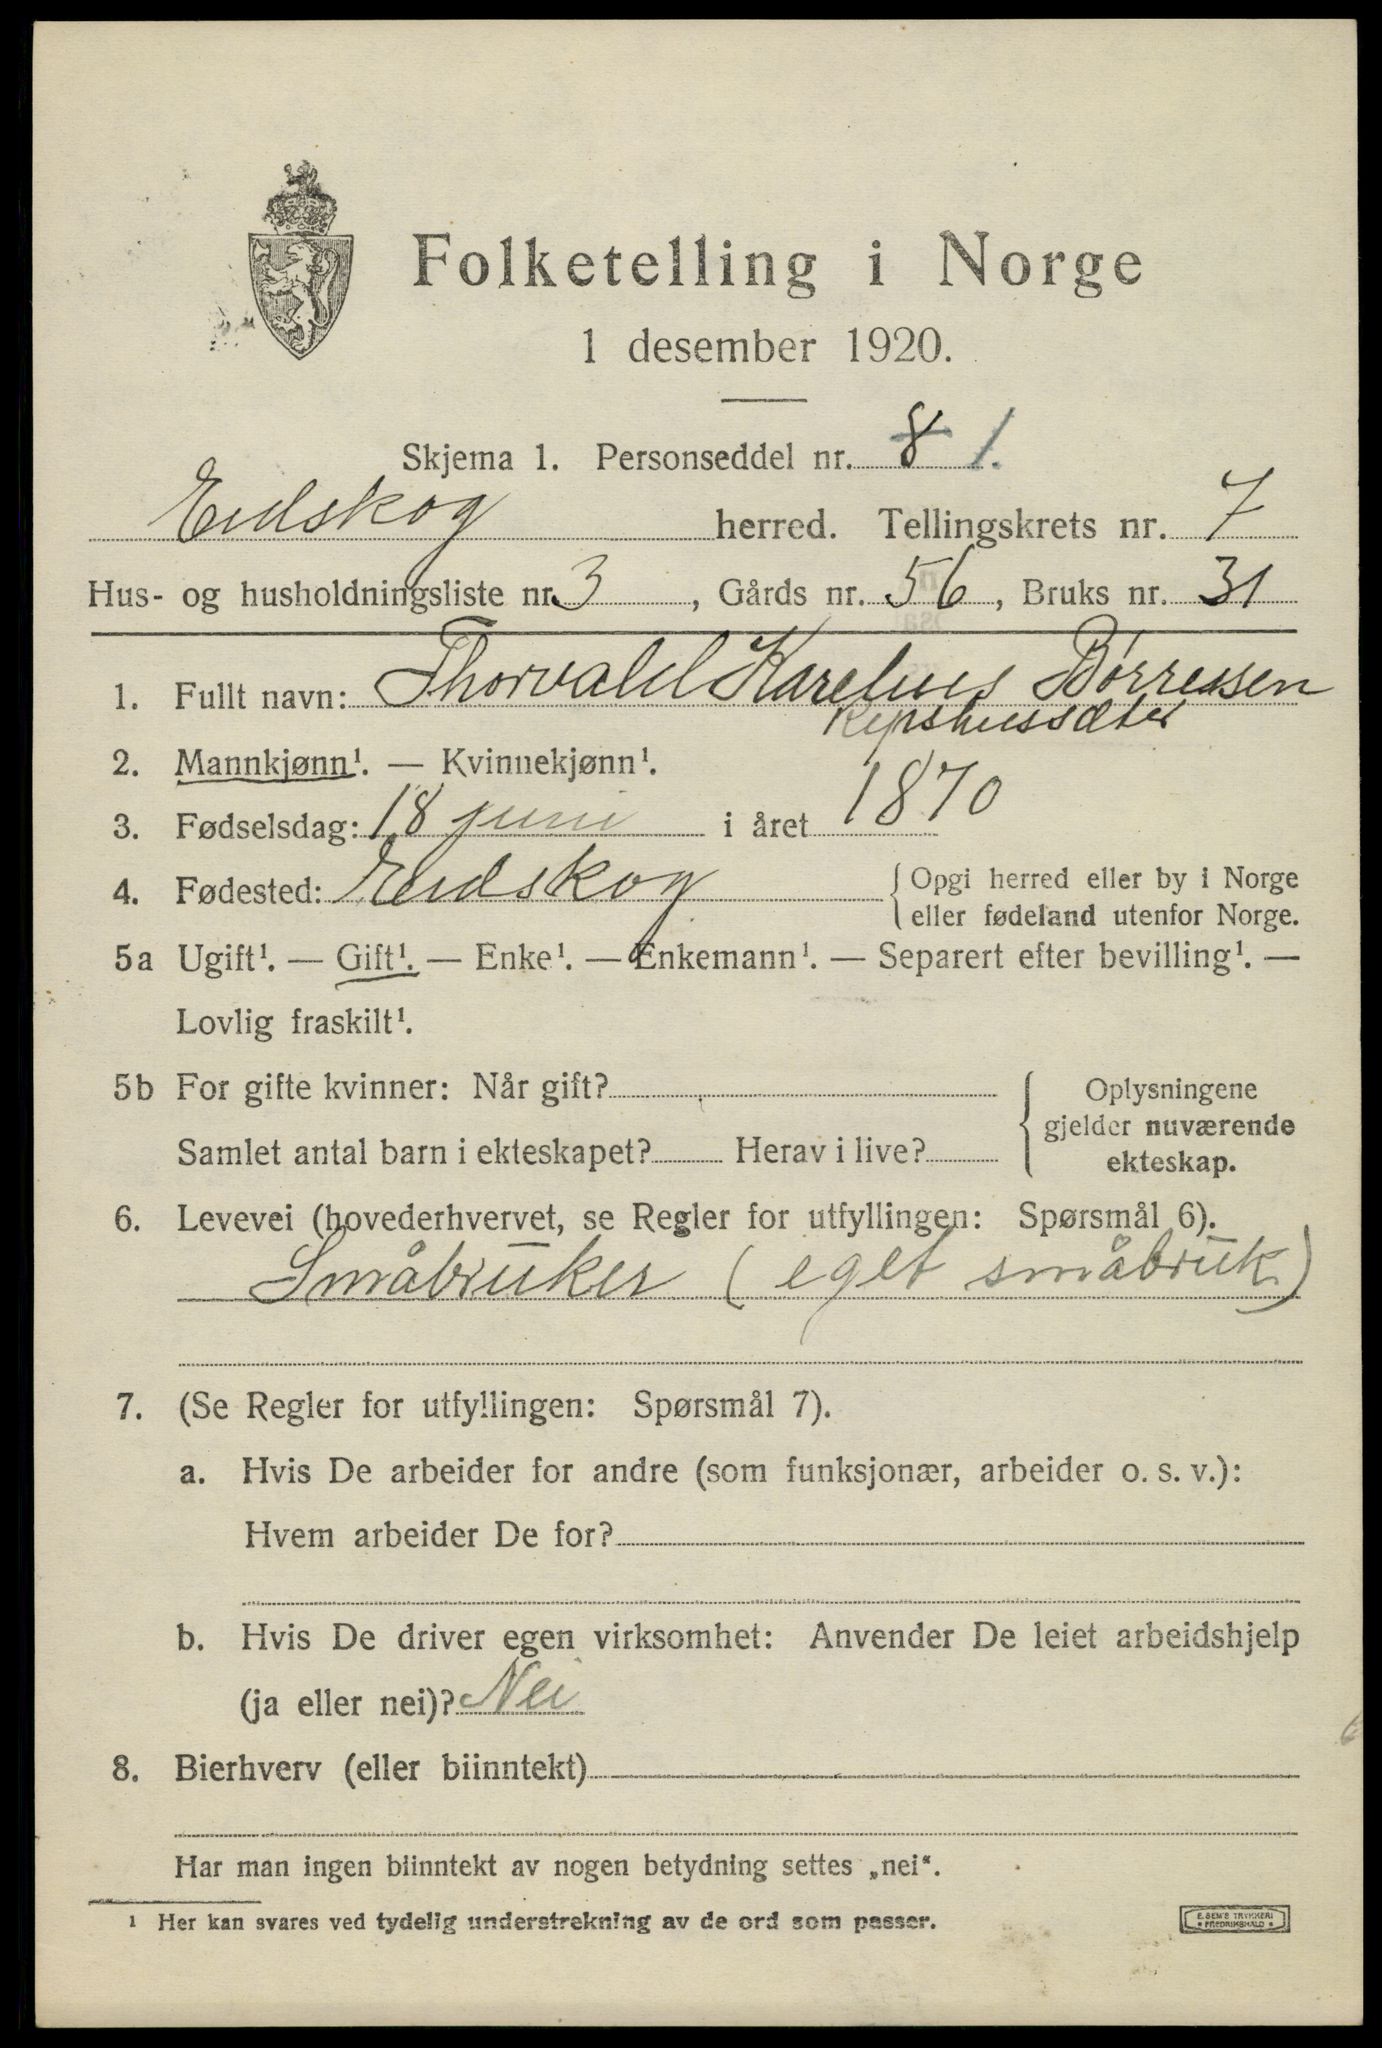 Folketelling i Norge
1 desember 1920.
Skjema 1. Personseddel nr. 8 1.
Eidskog herred. Tellingskrets nr. 7
Hus- og husholdningsliste nr. 3, Gårds nr. 56, Bruks nr. 31
1. Fullt navn: Thorvald Karelius Børresen
2. Mannkjønn¹. — Kvinnekjønn¹.
3. Fødselsdag: 18 juni i året 1870
4. Fødested: Eidskog { Opgi herred eller by i Norge
eller fødeland utenfor Norge.
5a Ugift¹. — Gift¹. — Enke¹. — Enkemann¹. — Separert efter bevilling¹. —
Lovlig fraskilt¹.
5b For gifte kvinner: Når gift? { Oplysningene
gjelder nuværende
Samlet antal barn i ekteskapet? Herav i live? ekteskap.
6. Levevei (hovederhvervet, se Regler for utfyllingen: Spørsmål 6).
Småbruker (eget småbruk)
7. (Se Regler for utfyllingen: Spørsmål 7).
a. Hvis De arbeider for andre (som funksjonær, arbeider o. s. v.):
Hvem arbeider De for?
b. Hvis De driver egen virksomhet: Anvender De leiet arbeidshjelp
(ja eller nei)? Nei
8. Bierhverv (eller biinntekt)
Har man ingen biinntekt av nogen betydning settes „nei“.
¹ Her kan svares ved tydelig understrekning av de ord som passer.
E. SEM'S TRYKKERI
FREDRIKSHALD